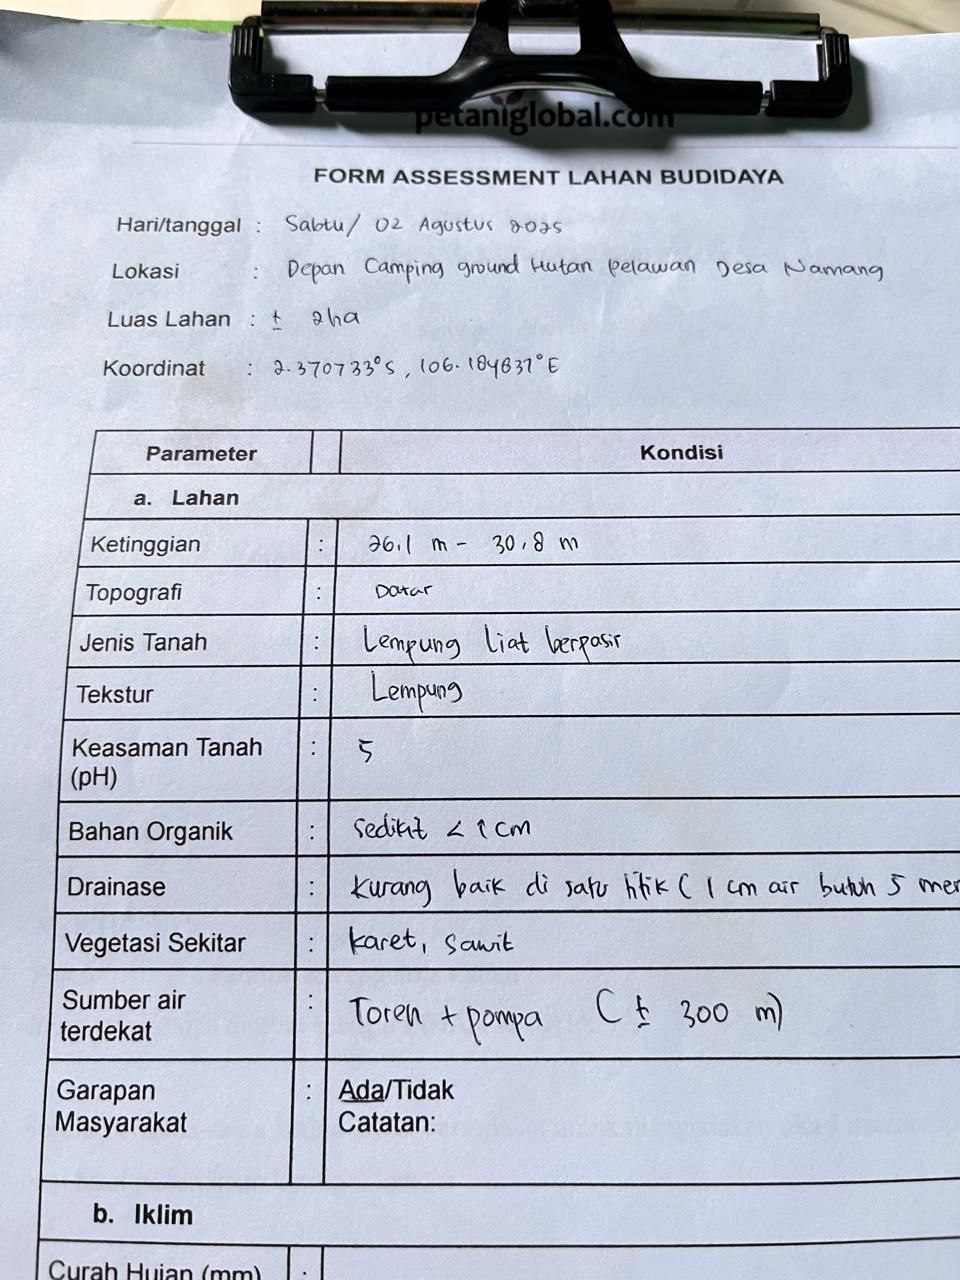 petaniglobal.com
FORM ASSESSMENT LAHAN BUDIDAYA
Hari/tanggal : Sabtu/ 02 Agustus 2025
Lokasi : Depan Camping ground Hutan pelawan Desa Namang
Luas Lahan : ± 2ha
Koordinat : 2.370733°S, 106.184837°E
Parameter Kondisi
a. Lahan
Ketinggian : 26,1 m - 30,8 m
Topografi : Datar
Jenis Tanah : Lempung liat berpasir
Tekstur : Lempung
Keasaman Tanah : 5
(pH)
Bahan Organik : Sedikit < 1 cm
Drainase : kurang baik di satu titik ( 1 cm air butuh 5 men
Vegetasi Sekitar : karet, sawit
Sumber air : Toren + pompa (± 300 m)
terdekat
Garapan : Ada/Tidak
Masyarakat Catatan:
b. Iklim
Curah Hujan (mm) :